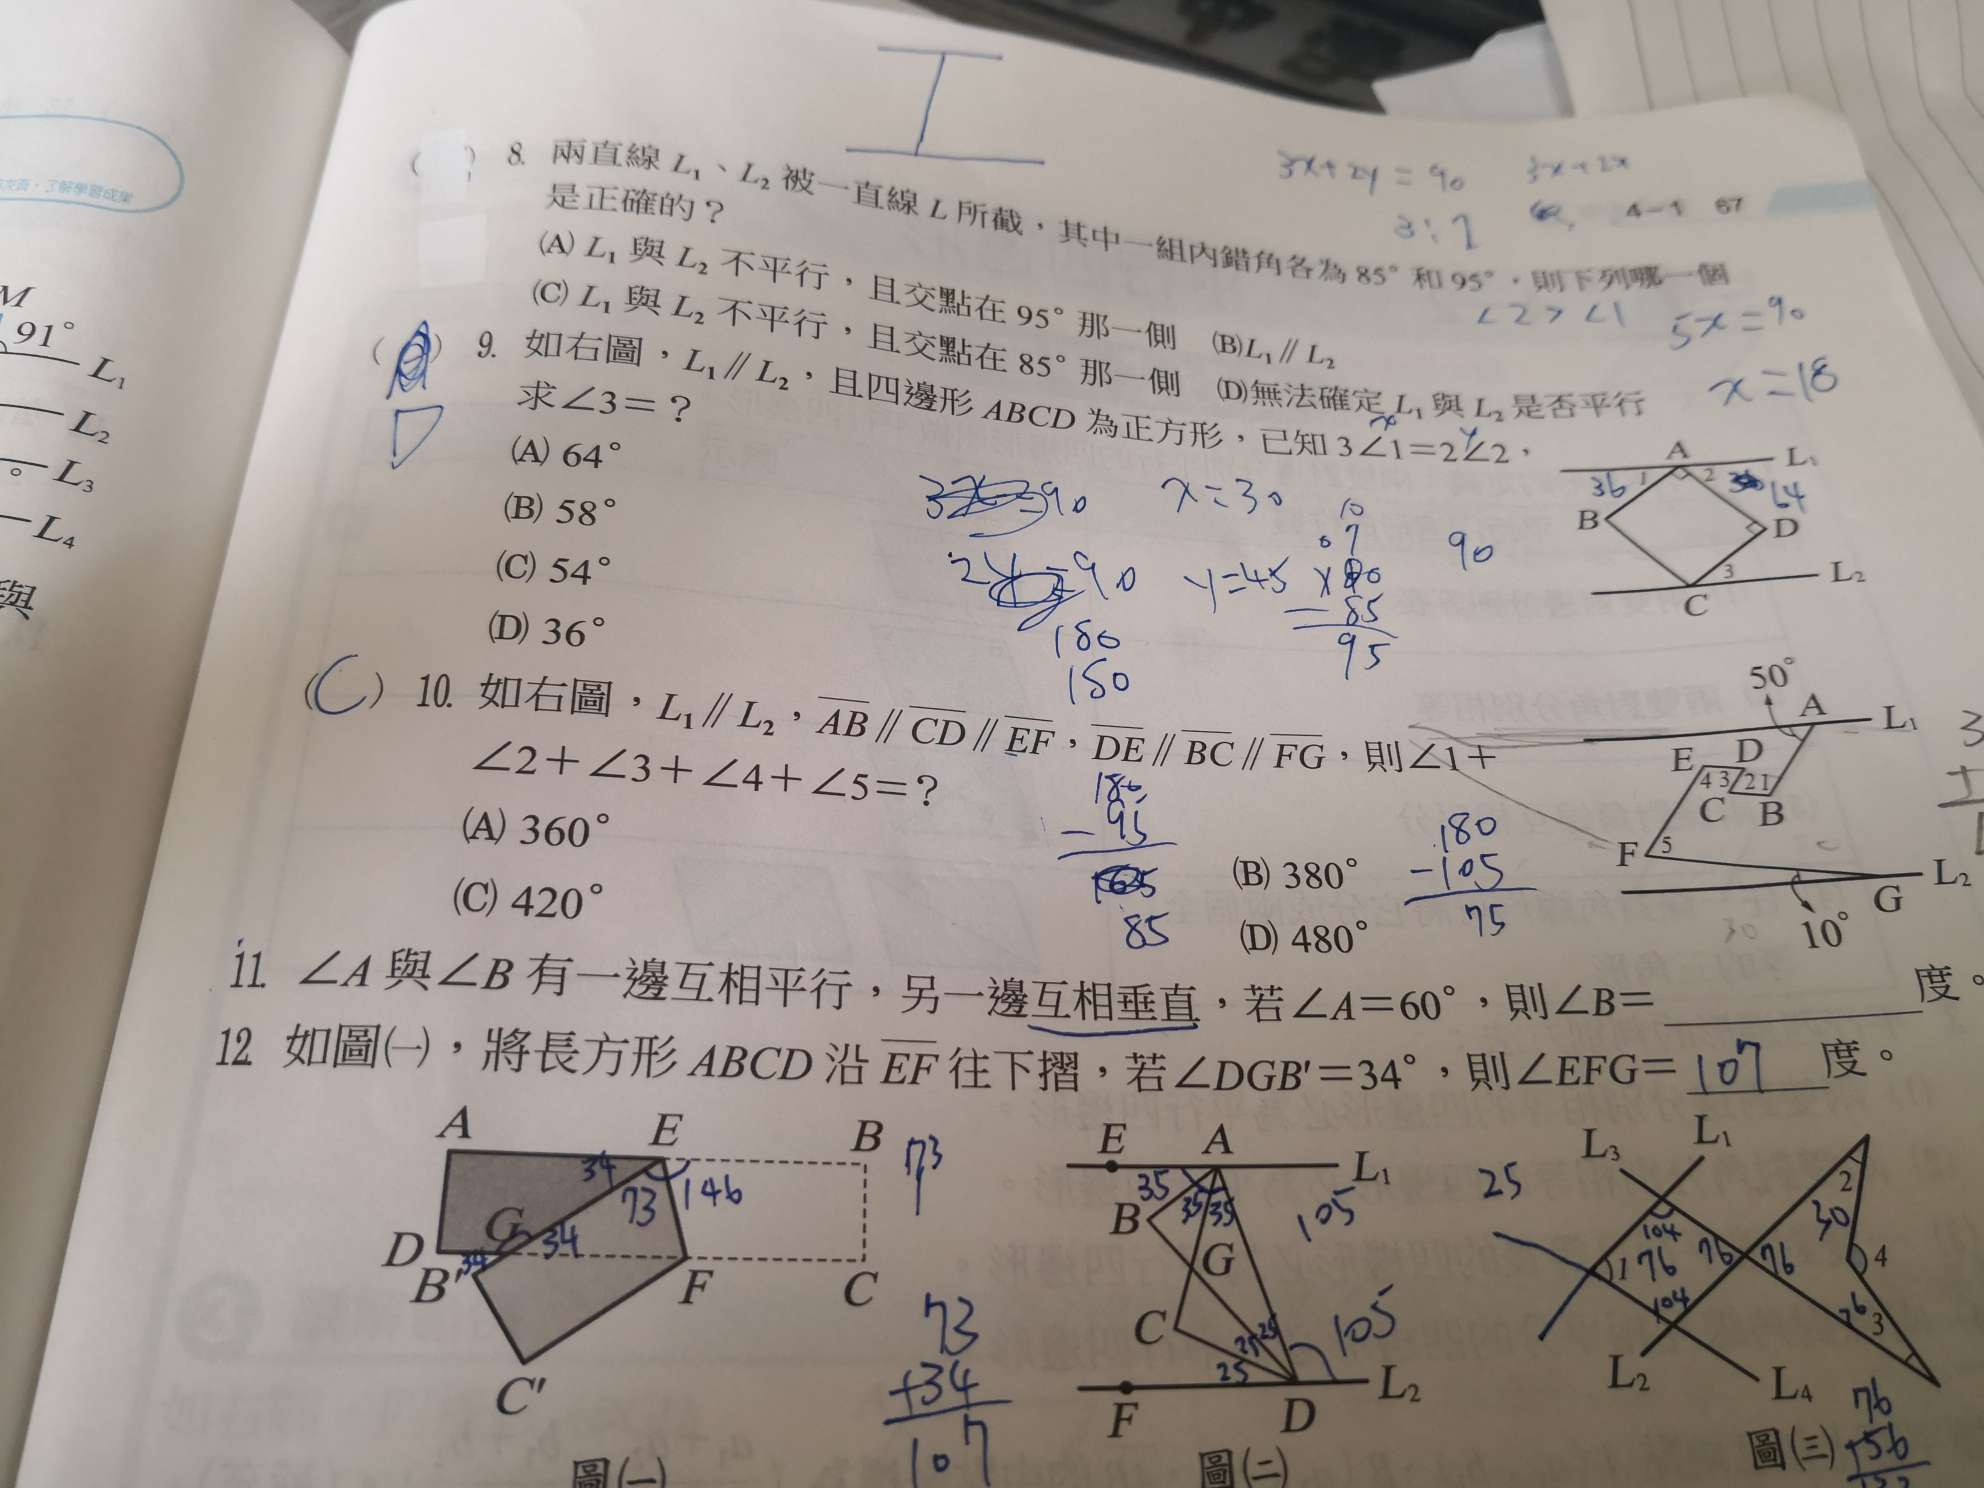 M
91°
L₁
L₂
L₃
L₄
與
3x+2y=90
3x+2x
4-1 67
8. 兩直線 L₁、L₂ 被一直線 L 所截，其中一組內錯角各為 85° 和 95°，則下列哪一個
是正確的？
(A) L₁ 與 L₂ 不平行，且交點在 95° 那一側 (B) L₁∥L₂
(C) L₁ 與 L₂ 不平行，且交點在 85° 那一側 (D) 無法確定 L₁ 與 L₂ 是否平行
∠2>∠1
5x=90
x=18
9. 如右圖，L₁∥L₂，且四邊形 ABCD 為正方形，已知 3∠1=2∠2，
求∠3=？
(A) 64°
(B) 58°
(C) 54°
(D) 36°
x=30
y=45
90
180
150
-85
95
A L₁
36 1 2 64
B D
3 L₂
C
(C) 10. 如右圖，L₁∥L₂，AB∥CD∥EF，DE∥BC∥FG，則∠1+
∠2+∠3+∠4+∠5=？
(A) 360°
(B) 380°
(C) 420°
(D) 480°
180
-95
85
180
-105
75
50°
A L₁
E D
4 3 2 1
C B
F 5
L₂
G
10°
11. ∠A 與∠B 有一邊互相平行，另一邊互相垂直，若∠A=60°，則∠B= 度。
12 如圖㈠，將長方形 ABCD 沿 EF 往下摺，若∠DGB'=34°，則∠EFG= 107 度。
A E B
34 73 146
D G 34
34
B' F C
C'
圖㈠
73
73
+34
107
E A L₁
35 35 35
B
G
105
C
25 25 25
105
F D L₂
圖㈡
25
L₃ L₁
2
30
104
1 76 76 76
4
104
76
3
L₂ L₄
圖㈢
76
+56